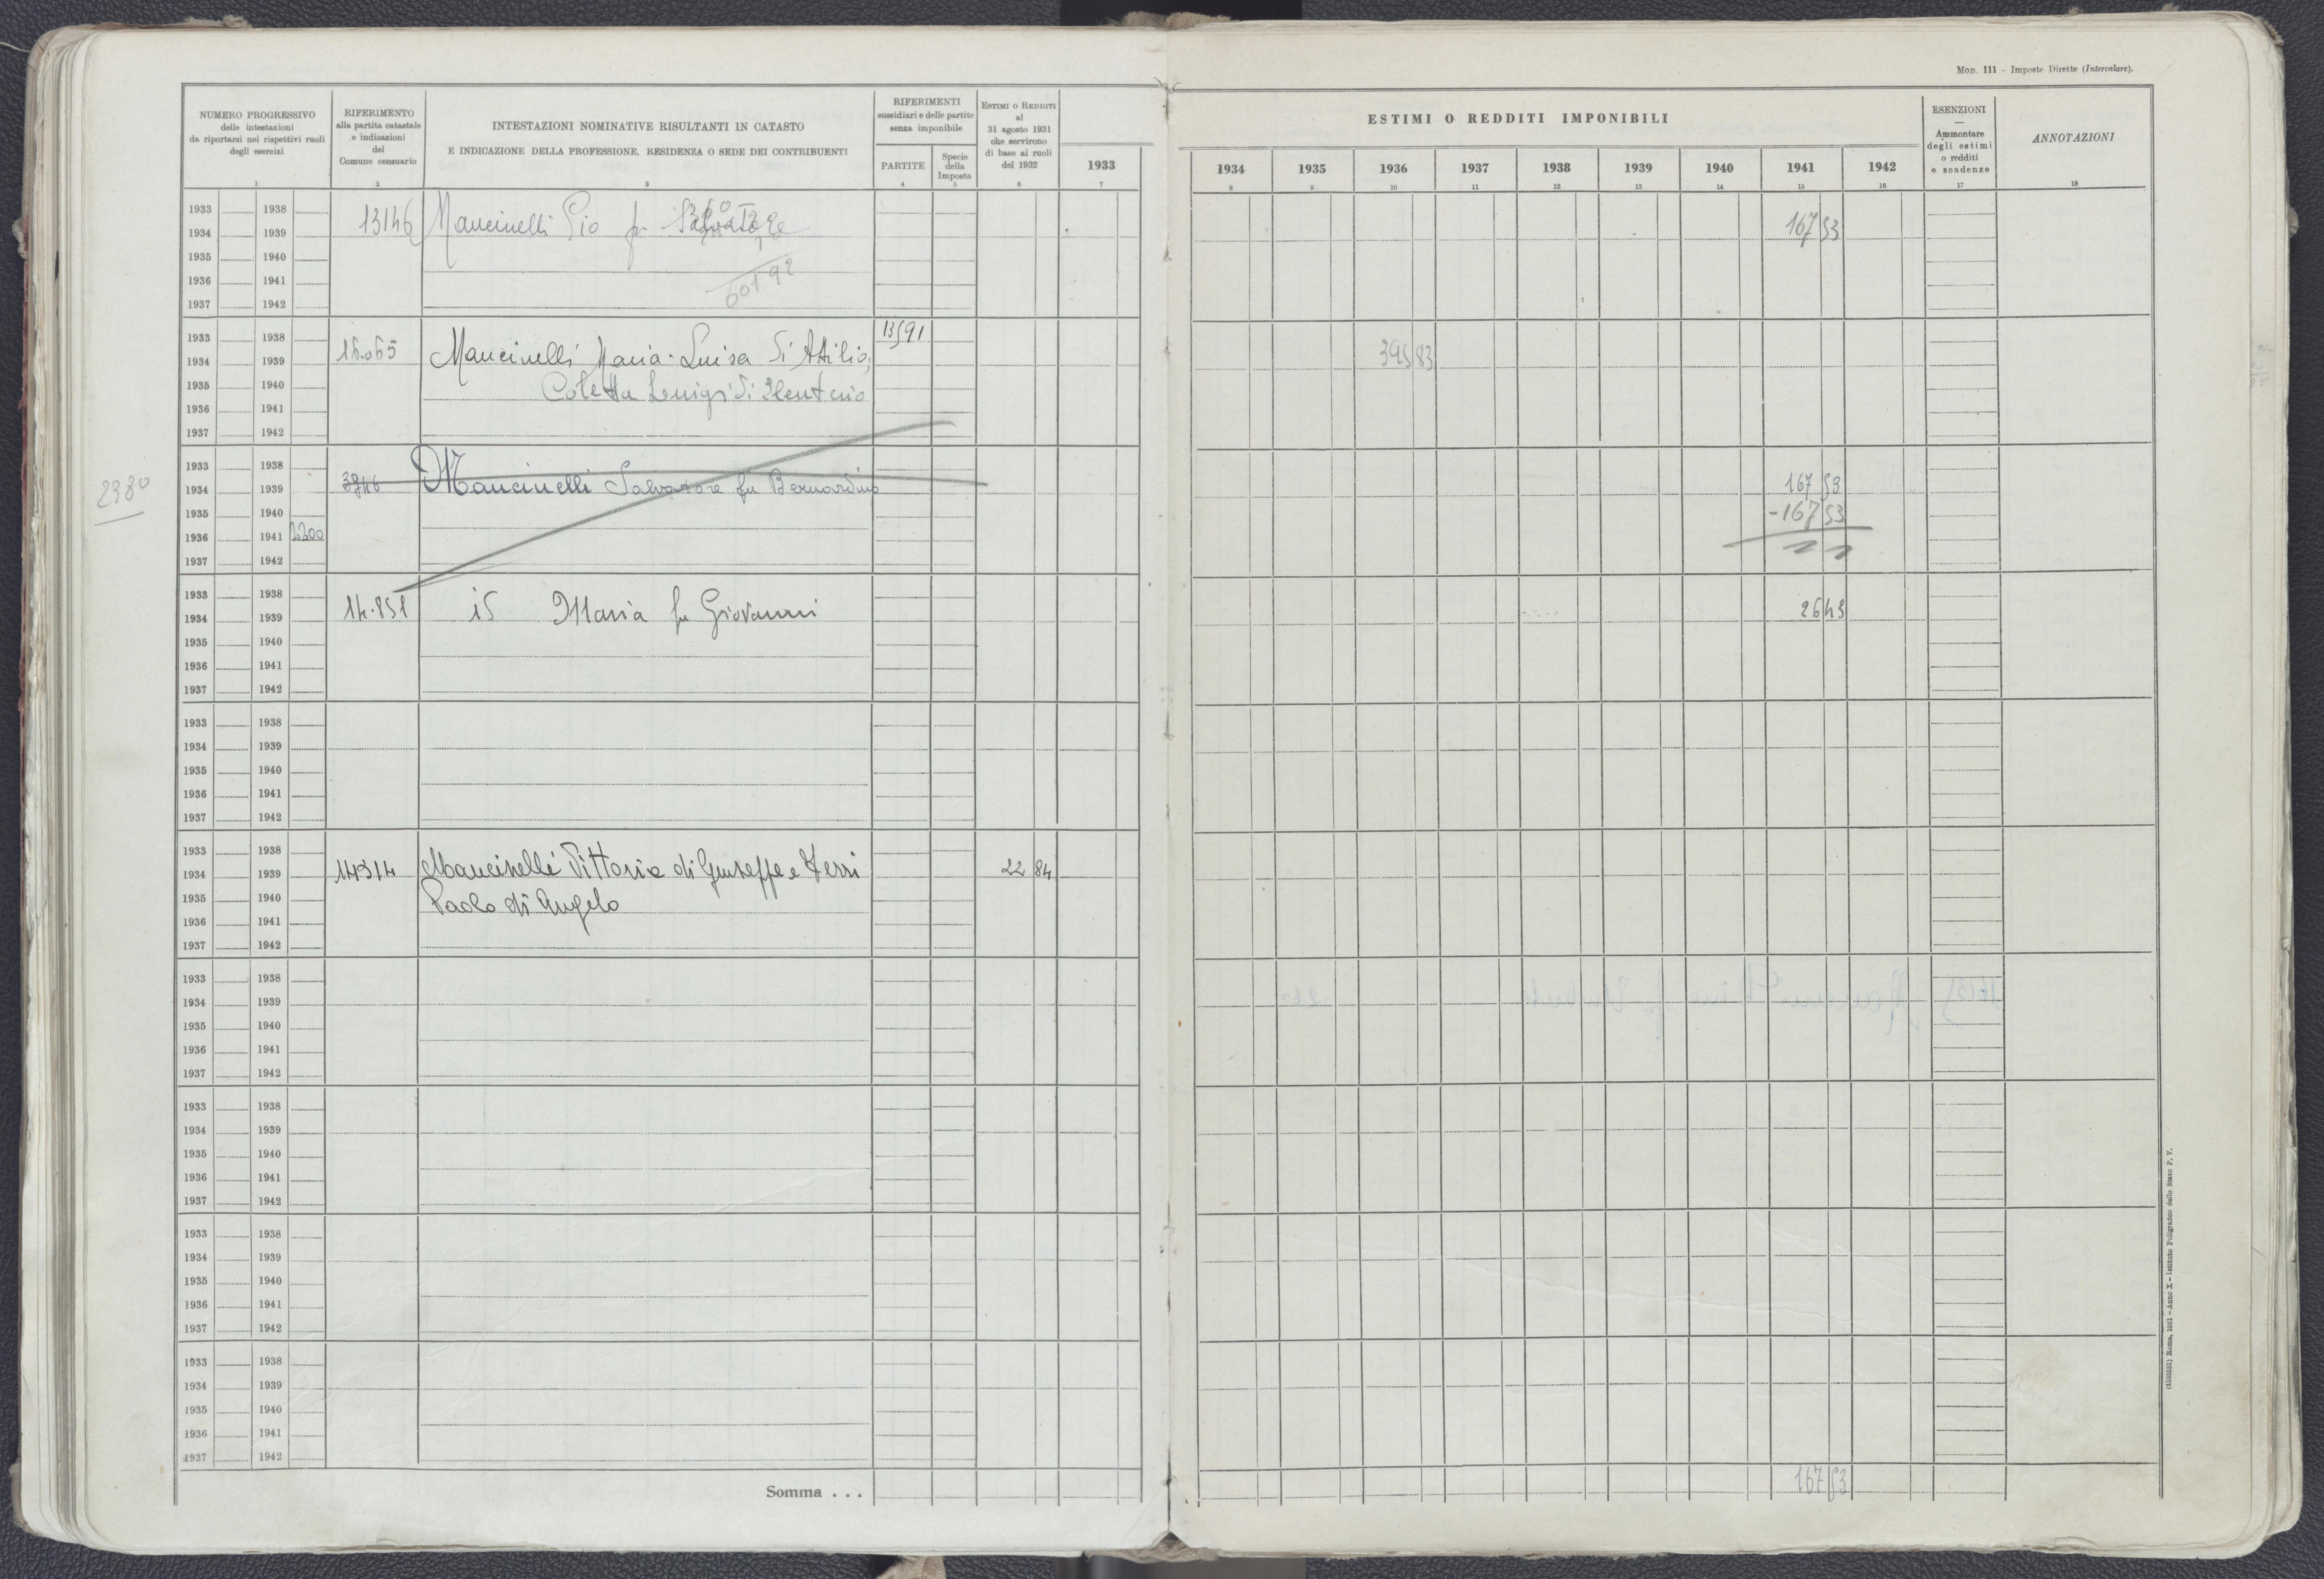 MOD. 111 - Imposte Dirette (Intercalare).
NUMERO PROGRESSIVO
delle intestazioni
da riportarsi nei rispettivi ruoli
degli esercizi
RIFERIMENTO
alla partita catastale
e indicazioni
del
Comune censuario
INTESTAZIONI NOMINATIVE RISULTANTI IN CATASTO
E INDICAZIONE DELLA PROFESSIONE, RESIDENZA O SEDE DEI CONTRIBUENTI
RIFERIMENTI
sussidiari e delle partite
senza imponibile
PARTITE
Specie
della
Imposta
ESTIMI O REDDITI
al
31 agosto 1931
che servirono
di base ai ruoli
del 1932
1933
ESTIMI O REDDITI IMPONIBILI
1934 1935 1936 1937 1938 1939 1940 1941 1942
ESENZIONI
—
Ammontare
degli estimi
o redditi
e scadenze
ANNOTAZIONI
1 2 3 4 5 6 7 8 9 10 11 12 13 14 15 16 17 18
1933 1938
1934 1939 13146 Mancinelli Pio fu Salvatore 167 53
1935 1940
1936 1941 601.92
1937 1942
1933 1938 13591
1934 1939 Mancinelli Maria-Luisa di Attilio, 395 83
1935 1940 Coletta Luigi di Eleuterio
1936 1941
1937 1942
1933 1938
2380
1934 1939 Mancinelli Salvatore fu Bernardino 167 53
1935 1940 -167 53
1936 1941 2200
1937 1942
1933 1938
1934 1939 14.851 is Maria fu Giovanni 26 43
1935 1940
1936 1941
1937 1942
1933 1938
1934 1939
1935 1940
1936 1941
1937 1942
1933 1938
1934 1939 14314 Mancinelli Vittoria di Giuseppe e Ferri 22 84
1935 1940 Paolo di Angelo
1936 1941
1937 1942
1933 1938
1934 1939
1935 1940
1936 1941
1937 1942
1933 1938
1934 1939
1935 1940
1936 1941
1937 1942
1933 1938
1934 1939
1935 1940
1936 1941
1937 1942
1933 1938
1934 1939
1935 1940
1936 1941
1937 1942
Somma . . . 167 53
Roma, 1931 - Anno X - Istituto Poligrafico dello Stato P. V.